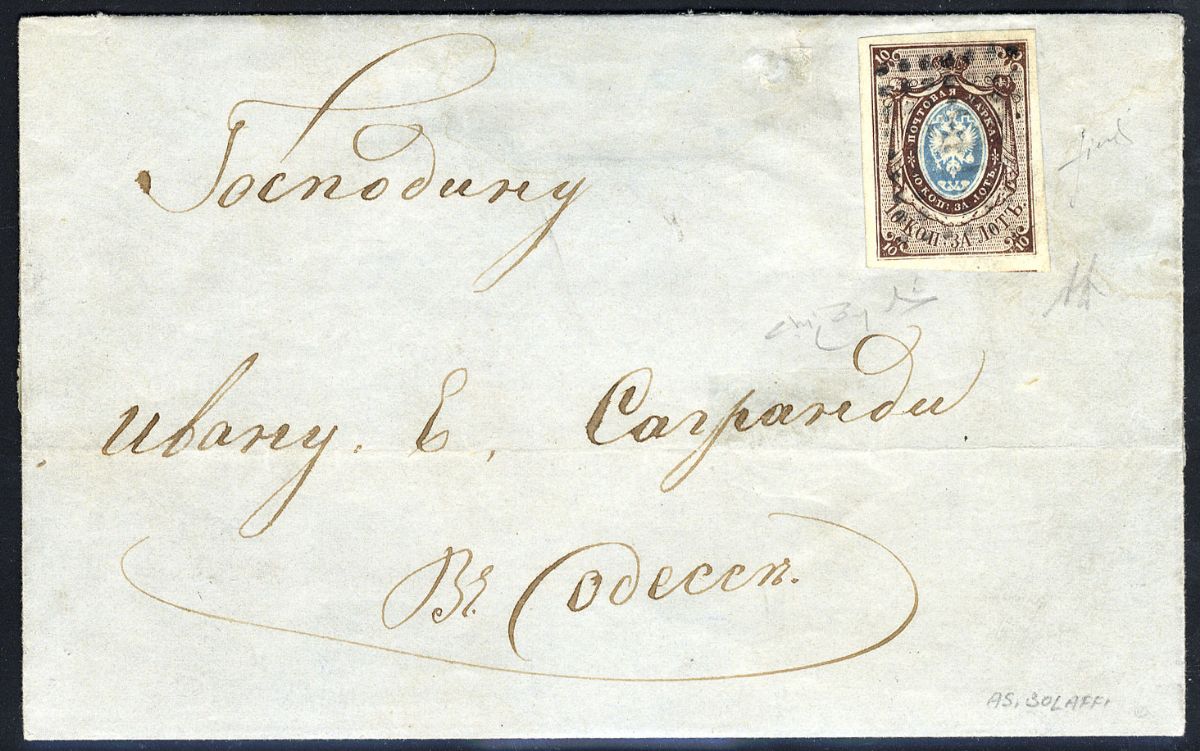 Господину
Ивану. Е. Саграnди
Въ Одессѣ.
10 10
ПОЧТОВАЯ МАРКА
10 КОП: ЗА ЛОТЪ.
10 КОП: ЗА ЛОТЪ.
10 10
AS. BOLAFFI